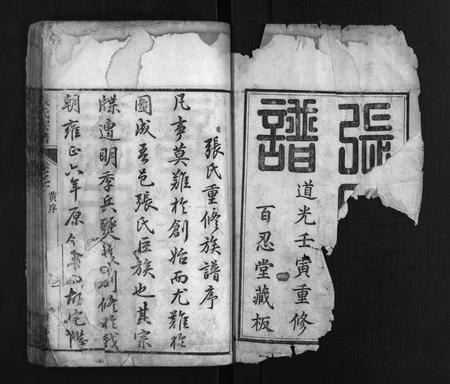 張
譜
道光壬寅重修
百忍堂藏板
張氏重修族譜序
凡事莫難於創始而尤難於
圖成吾邑張氏巨族也其宗
牒遭明季兵燹後創修於我
朝雍正六年原令
黃序